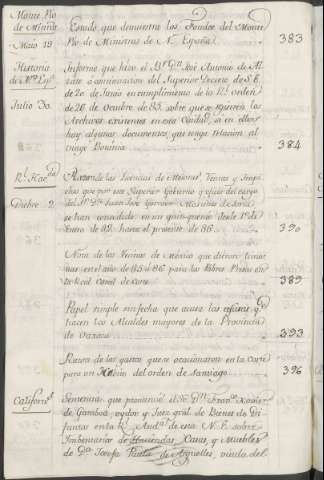 Monte Pio
de Minis.
Mayo 19
Estado que demuestra los Fondos del Monte
Pio de Ministros de N.ª España
383
Historia
de N.ª Esp.ª
Julio 30.
Informe que hizo el D. José Antonio de Al
zate á continuacion del Superior Decreto de S.E.
de 20 de Junio en cumplimiento de la R.l orden
de 20 de Octubre de 85. sobre que se registren los
Archivos existentes en esta Ciudad, si en ellos
hay algunos documentos que tenga relacion al
Linage Bovino
384
R.l Hac.da
Dicbre 2.
Razon de las Licencias de Mesones, Tiendas y
que por este Superior Gobierno y oficio del cargo
del S.r D.n Juan José Martinez de Soria
se han concedido en un quinquenio desde 1.º de
Enero de 82. hasta el presente de 86.
390
Nota de las Vecinas de Mexico que dieron
nas en el año de 85 á 86 para las Pobres Presas en
la Real Carcel de Corte
389
Papel simple sin fecha que acusa los excesos q.e
hacen los Alcaldes mayores de la Provincia
de Oaxaca
393
Razon de los gastos que se ocasionaron en la Corte
para un Habito del orden de Santiago
396
Californ.s
Sentencia que pronunció el S.r D.n Fran.co Xavier
de Gamboa, oydor y Juez gral de Bienes de Di
funtos en la R.l Aud.a de esta N. E. sobre
Imbentarios de Haciendas, Casas, y Muebles
de D.ª Josefa Paula de Arguelles, viuda del